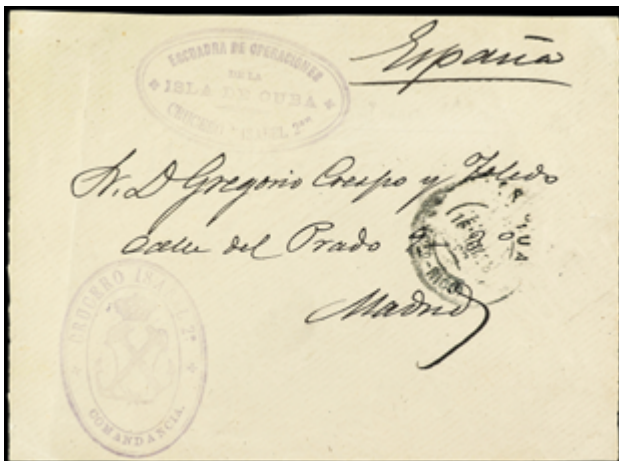 España
ESCUADRA DE OPERACIONES
DE LA
ISLA DE CUBA
CRUCERO ISABEL 2ª
Sr. D Gregorio Crespo y Toledo
Calle del Prado
Madrid
CRUCERO ISA L 2ª
COMANDANCIA.
RICO